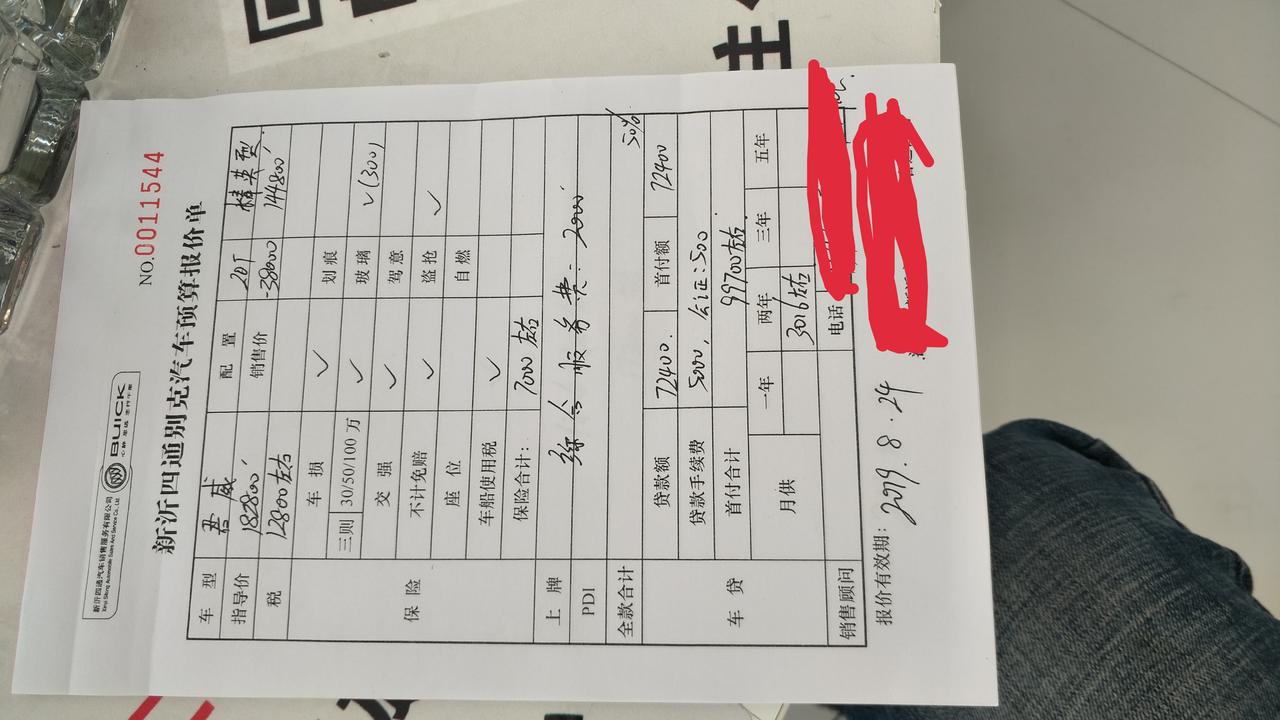 新沂四通汽车销售服务有限公司
Xinyi Sitong Automobile Sales And Service Co., Ltd.
BUICK
心静 思远 志行千里
NO.0011544
新沂四通别克汽车预算报价单
车 型 君威 配 置 20T 精英型
指导价 182800 销售价 -38000 144800
税 12800左右
保 险
车 损 ✓ 划 痕
三则 30/50/100 万 ✓ 玻 璃 ✓(300)
交 强 ✓ 驾 意
不计免赔 ✓ 盗 抢 ✓
座 位 自 燃
车船使用税 ✓
保险合计: 7000左右
上 牌
PDI
综合服务费: 2000
全款合计 50%
车 贷
贷款额 72400. 首付额 72400
贷款手续费 5000, 公证:500
首付合计 99700左右
月供 一年 两年 三年 五年
3016左右
销售顾问 电话
报价有效期: 2019.8.24